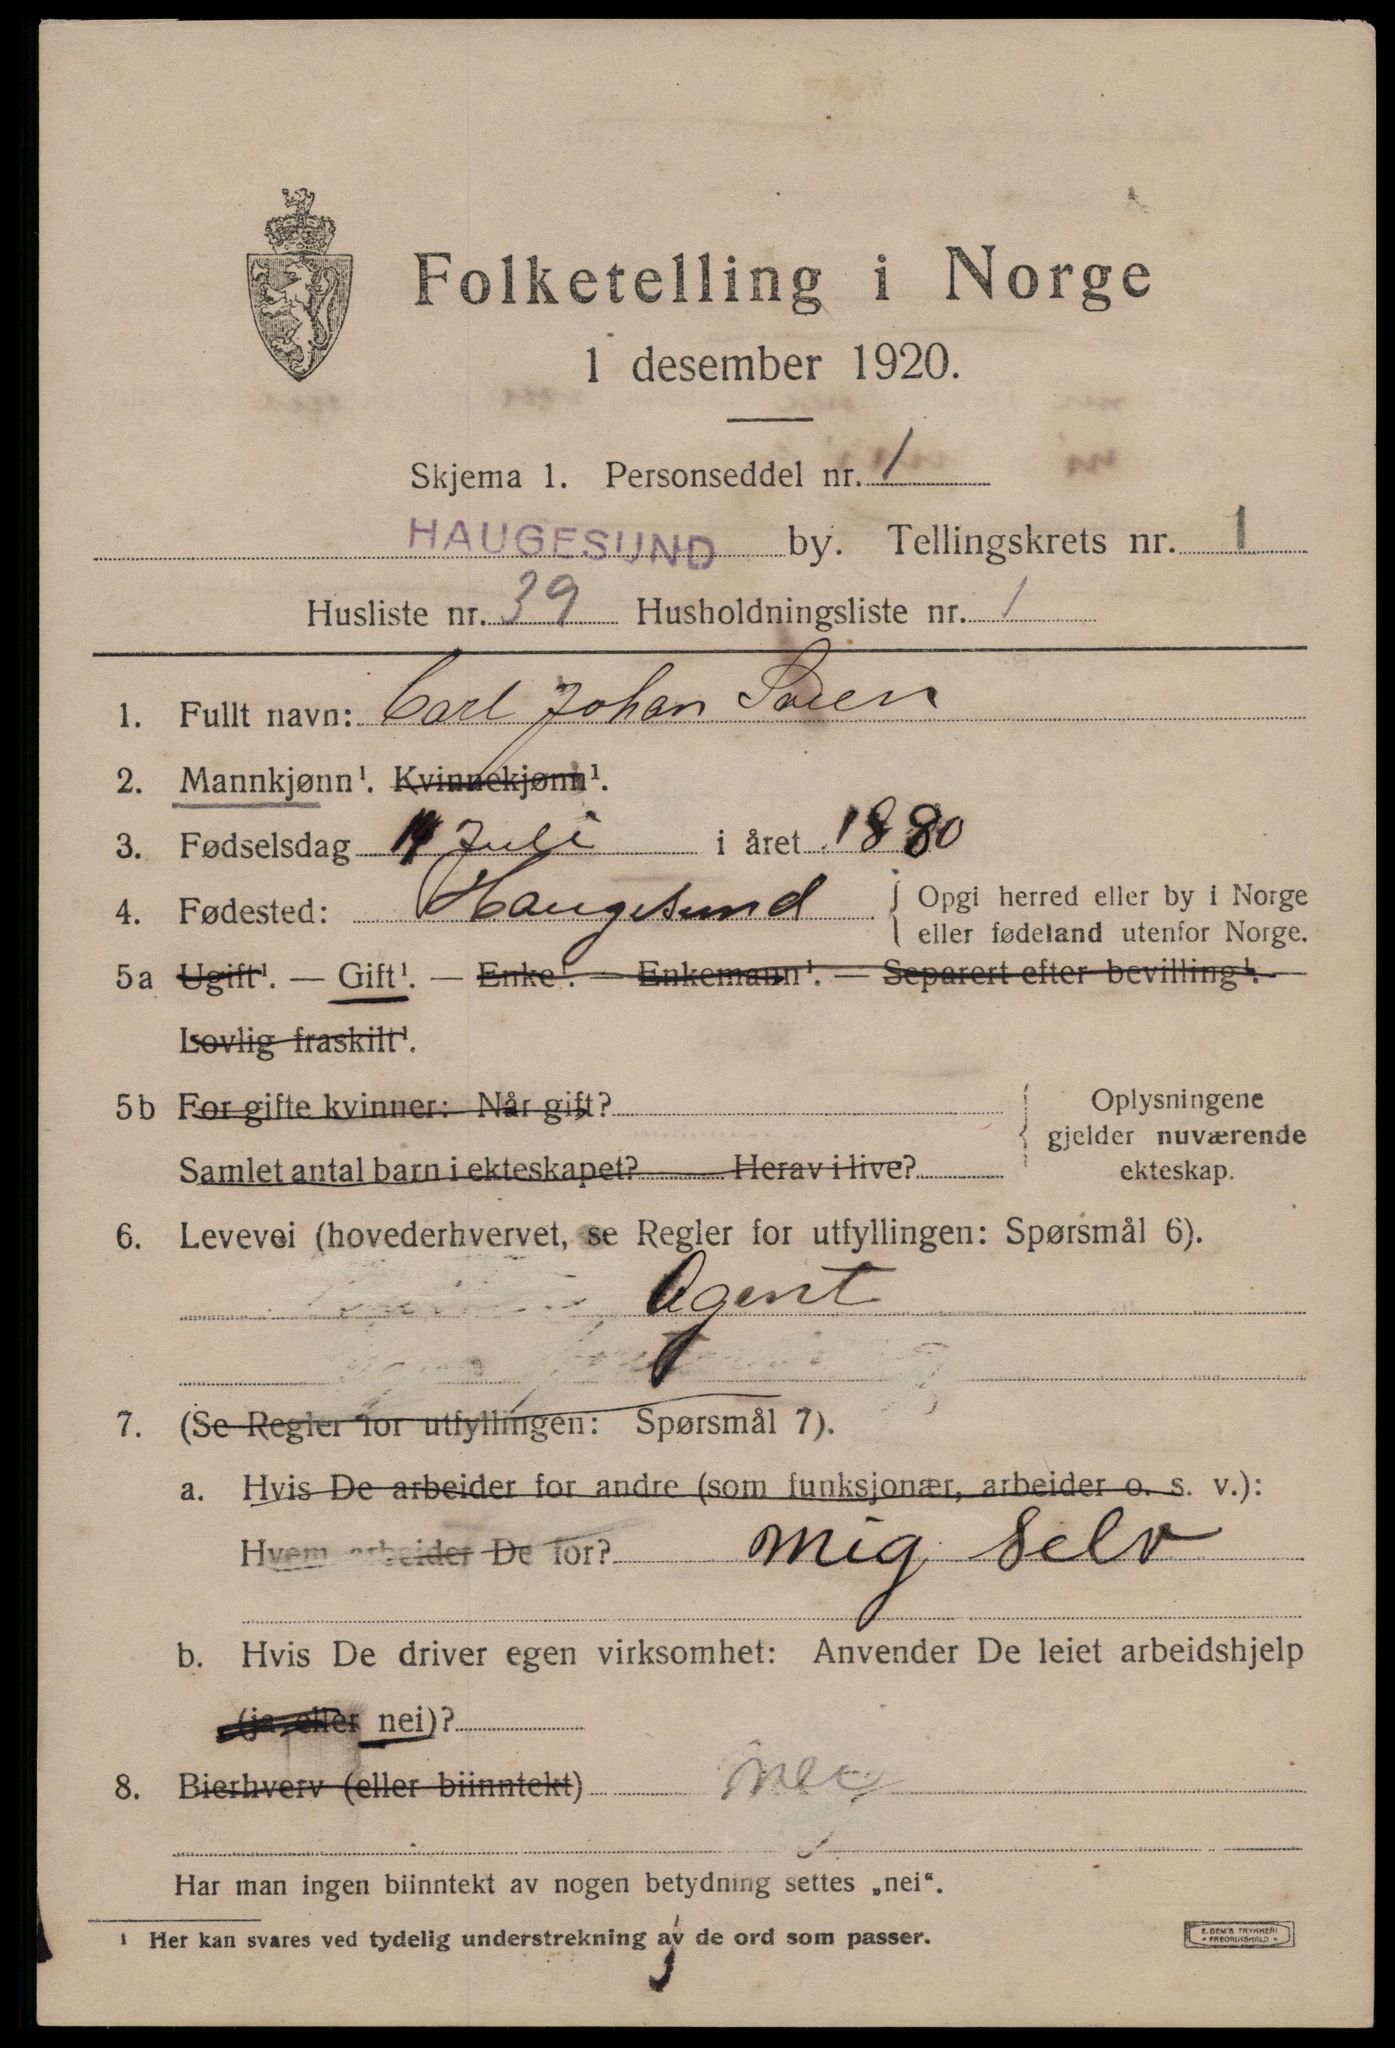 Folketelling i Norge
1 desember 1920.
Skjema 1. Personseddel nr. 1
HAUGESUND by. Tellingskrets nr. 1
Husliste nr. 39 Husholdningsliste nr. 1
1. Fullt navn: Carl Johan
2. Mannkjønn¹. Kvinnekjønn¹.
3. Fødselsdag Juli i året 1880
4. Fødested: Haugesund { Opgi herred eller by i Norge
eller fødeland utenfor Norge.
5a Ugift¹. — Gift¹. — Enke¹. — Enkemann¹. — Separert efter bevilling¹. —
Lovlig fraskilt¹.
5b For gifte kvinner: Når gift? { Oplysningene
gjelder nuværende
Samlet antal barn i ekteskapet? Herav i live? ekteskap.
6. Levevei (hovederhvervet, se Regler for utfyllingen: Spørsmål 6).
Agent
7. (Se Regler for utfyllingen: Spørsmål 7).
a. Hvis De arbeider for andre (som funksjonær, arbeider o. s. v.):
Hvem arbeider De for? Mig Selv
b. Hvis De driver egen virksomhet: Anvender De leiet arbeidshjelp
(ja eller nei)?
8. Bierhverv (eller biinntekt) nei
Har man ingen biinntekt av nogen betydning settes „nei“.
¹ Her kan svares ved tydelig understrekning av de ord som passer.
E. SEM'S TRYKKERI
• FREDRIKSHALD •